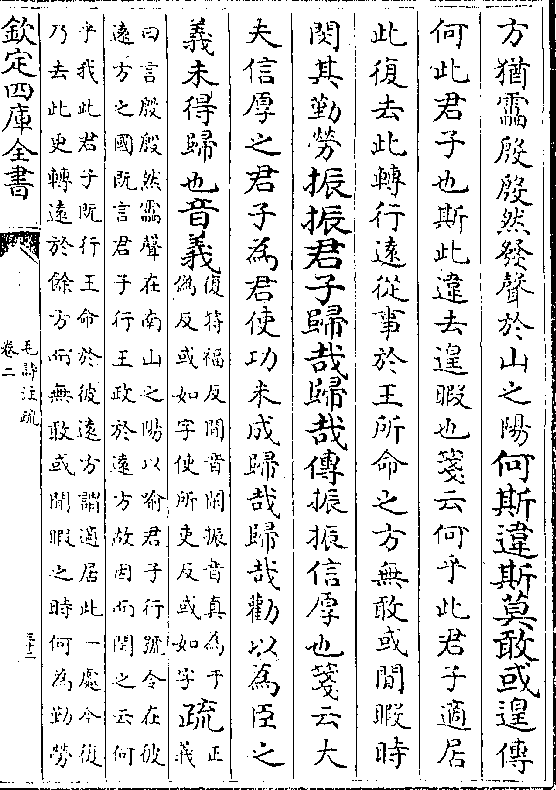 方猶靁殷殷然發聲於山之陽何斯違斯莫敢或遑傳
何此君子也斯此違去遑暇也箋云何乎此君子適居
此復去此轉行遠從事於王所命之方無敢或閒暇時
閔其勤勞振振君子歸哉歸哉傳振振信厚也箋云大
夫信厚之君子為君使功未成歸哉歸哉勸以為臣之
義未得歸也音義復特福反閒音閑振音真為于
偽反或如字使所吏反或如字疏正
義
曰言殷殷然靁聲在南山之陽以喻君子行號令在彼
遠方之國既言君子行王政於遠方故因而閔之云何
乎我此君子既行王命於彼遠方謂適居此一處今復
乃去此更轉遠於餘方而無敢或閒暇之時何為勤勞
欽定四庫全書
毛詩注疏
卷二